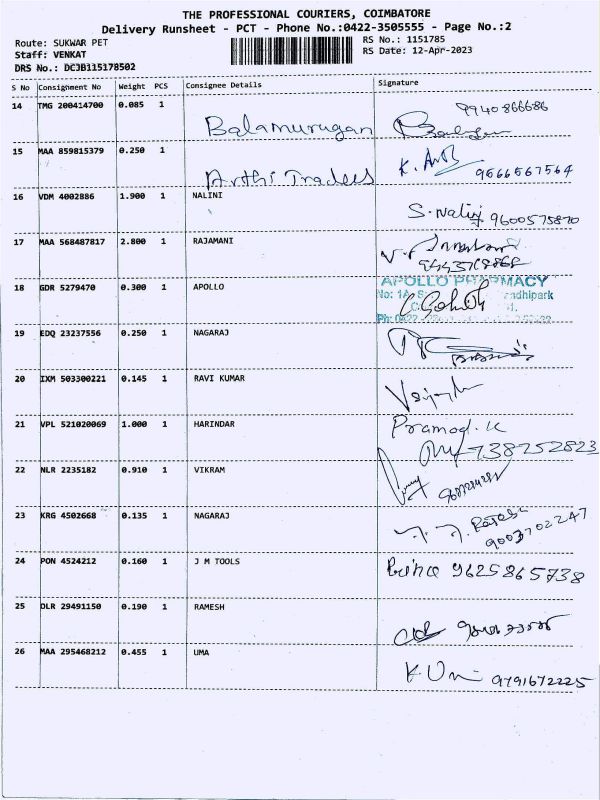 THE PROFESSIONAL COURIERS, COIMBATORE
Delivery Runsheet - PCT - Phone No.:0422-3505555 - Page No.:2
Route: SUKWAR PET RS No.: 1151785
Staff: VENKAT RS Date: 12-Apr-2023
DRS No.: DCJB115178502
S No Consignment No Weight PCS Consignee Details Signature
14 TMG 200414700 0.085 1 Balamurugan 9940866686
15 MAA 859815379 0.250 1 Arthi Traders K. 9566567564
16 VDM 4002886 1.900 1 NALINI S. Nalini 9600575870
17 MAA 568487817 2.800 1 RAJAMANI
18 GDR 5279470 0.300 1 APOLLO APOLLO PHARMACY
No: 1A, ndhipark
Ph: 0422
19 EDQ 23237556 0.250 1 NAGARAJ
20 IXM 503300221 0.145 1 RAVI KUMAR
21 VPL 521020069 1.000 1 HARINDAR Pramod. K
738252823
22 NLR 2235182 0.910 1 VIKRAM
23 KRG 4502668 0.135 1 NAGARAJ
9003702247
24 PON 4524212 0.160 1 J M TOOLS 9625865738
25 DLR 29491150 0.190 1 RAMESH
26 MAA 295468212 0.455 1 UMA K. 9791672225